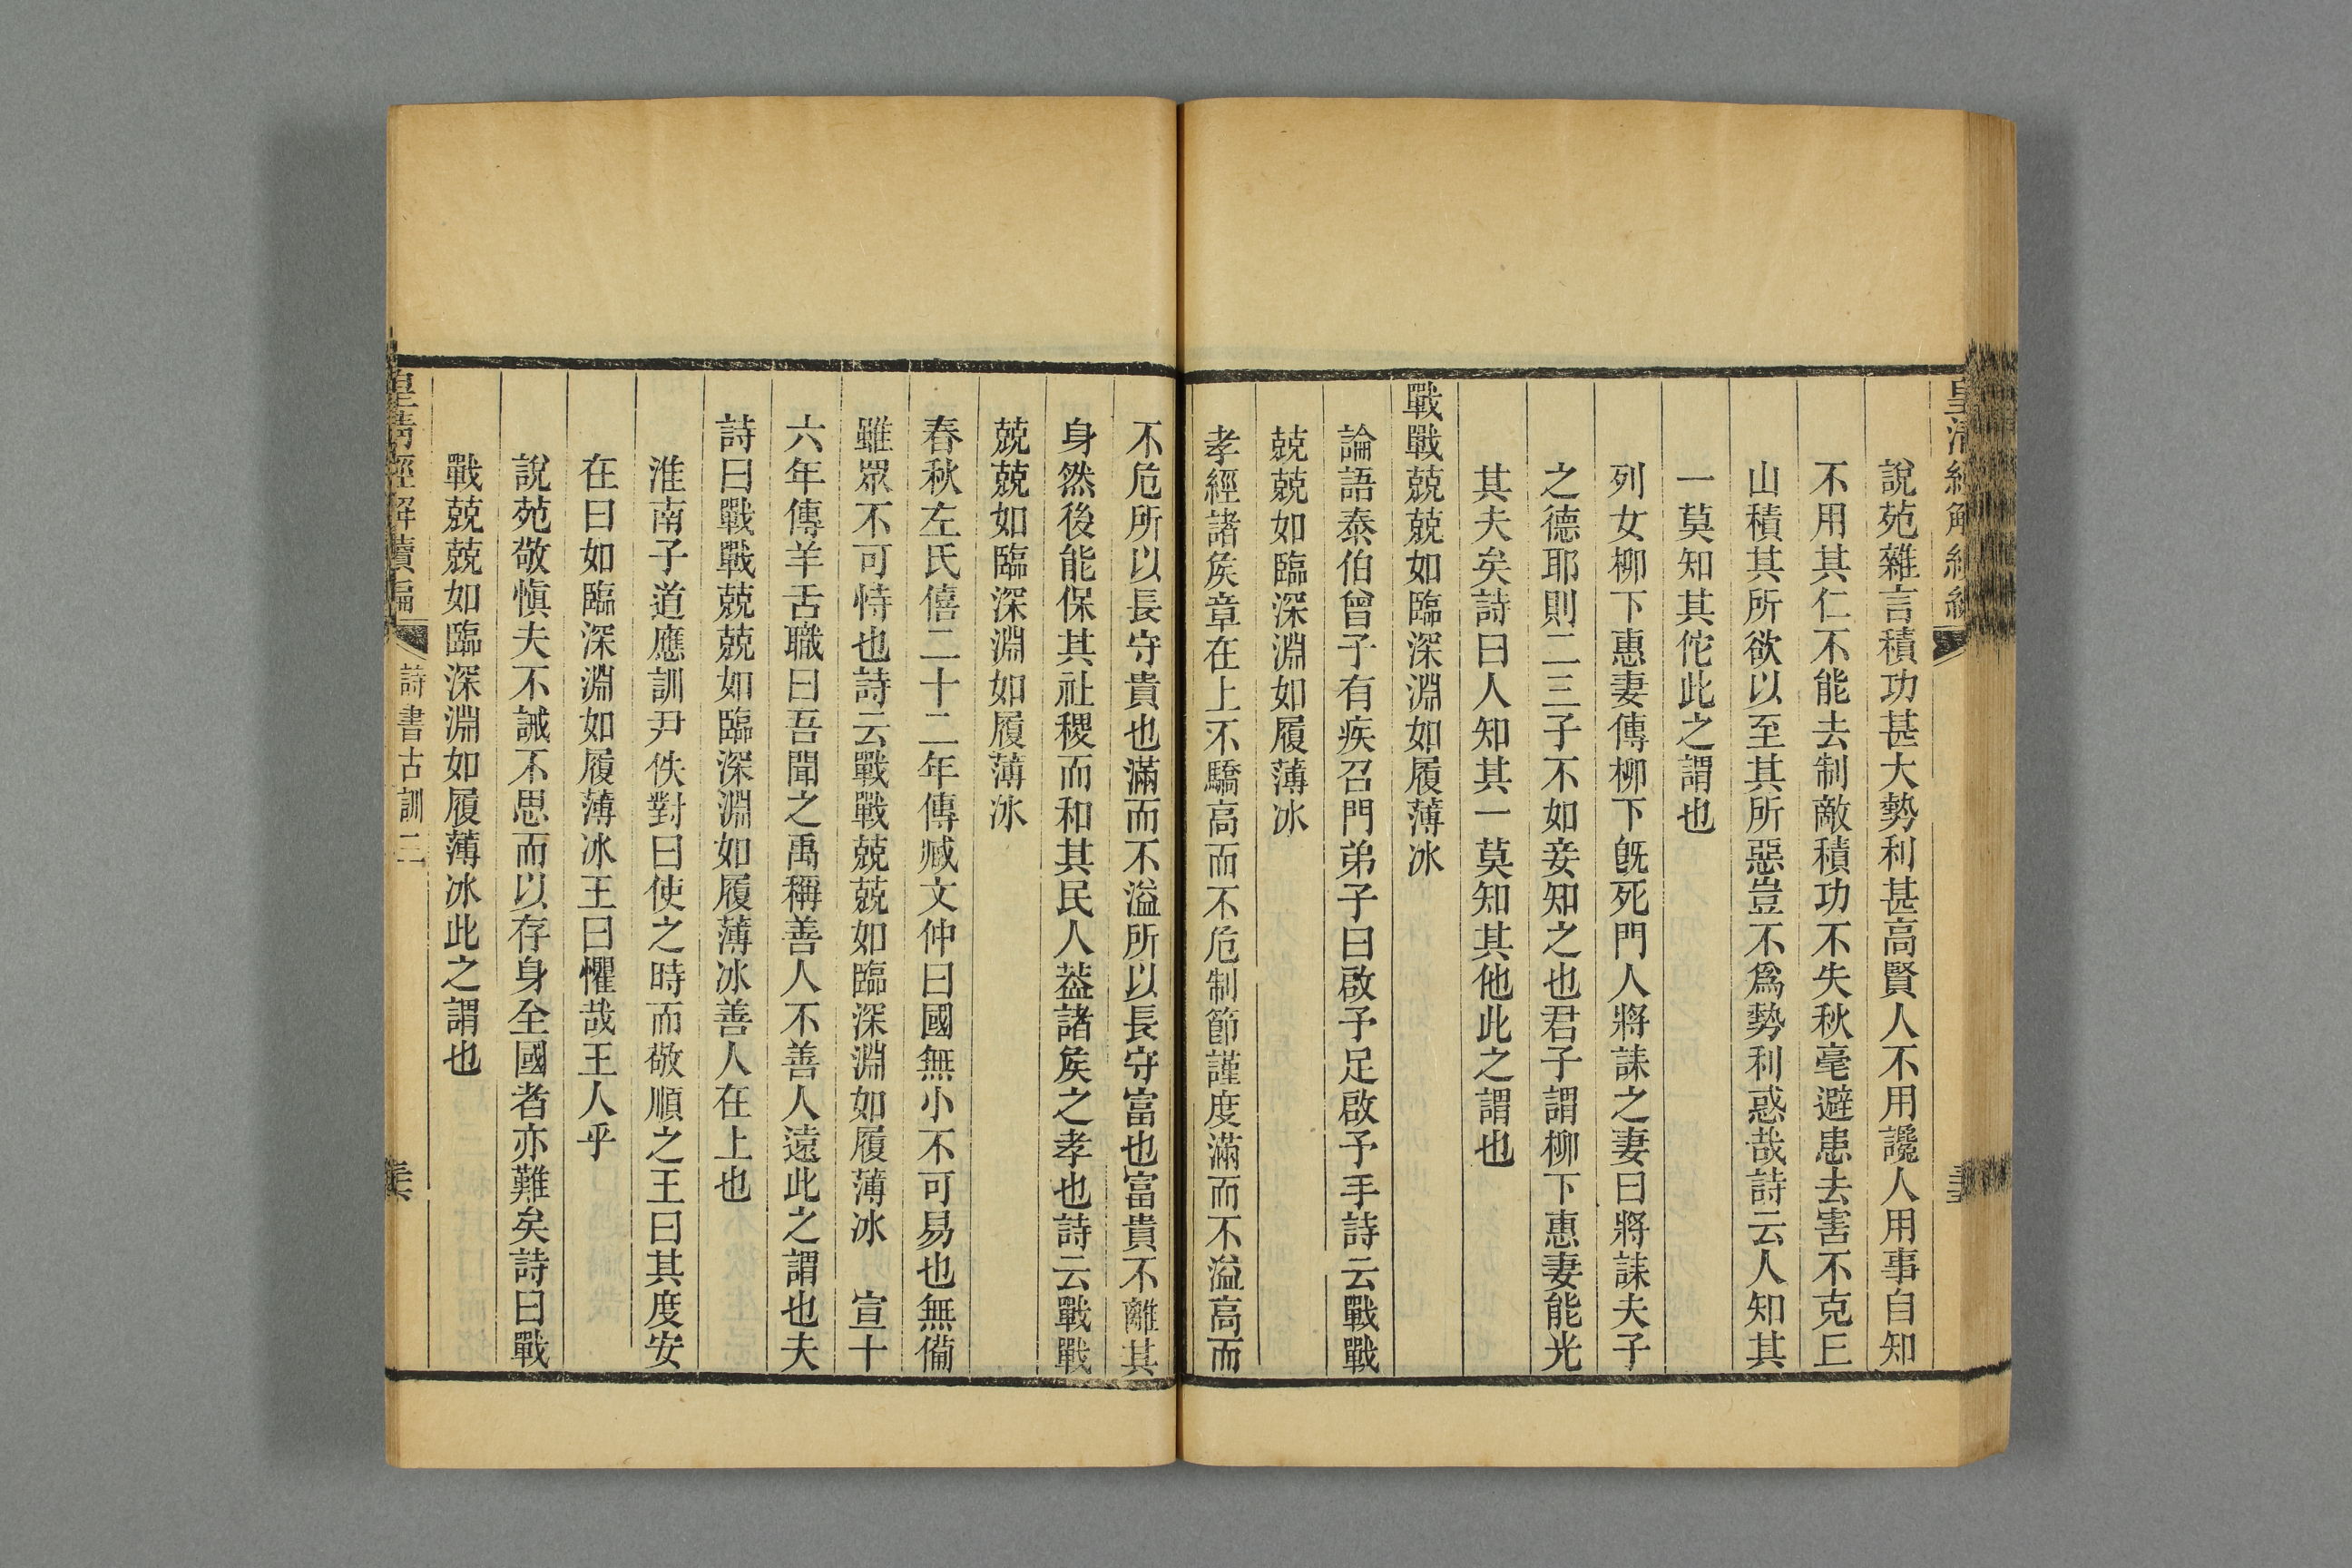 皇清經解續編
說苑雜言積功甚大勢利甚高賢人不用讒人用事自知
不用其仁不能去制敵積功不失秋毫避患去害不克㠯
山積其所欲以至其所惡豈不爲勢利惑哉詩云人知其
一莫知其佗此之謂也
列女柳下惠妻傳柳下旣死門人將誄之妻曰將誄夫子
之德耶則二三子不如妾知之也君子謂柳下惠妻能光
其夫矣詩曰人知其一莫知其他此之謂也
戰戰兢兢如臨深淵如履薄冰
論語泰伯曾子有疾召門弟子曰啟予足啟予手詩云戰戰
兢兢如臨深淵如履薄冰
孝經諸矦章在上不驕高而不危制節謹度滿而不溢高而
不危所以長守貴也滿而不溢所以長守富也富貴不離其
身然後能保其社稷而和其民人葢諸矦之孝也詩云戰戰
兢兢如臨深淵如履薄冰
春秋左氏僖二十二年傳臧文仲曰國無小不可易也無備
雖眾不可恃也詩云戰戰兢兢如臨深淵如履薄冰 宣十
六年傳羊舌職曰吾聞之禹稱善人不善人遠此之謂也夫
詩曰戰戰兢兢如臨深淵如履薄冰善人在上也
淮南子道應訓尹佚對曰使之時而敬順之王曰其度安
在曰如臨深淵如履薄冰王曰懼哉王人乎
說苑敬愼夫不誡不思而以存身全國者亦難矣詩曰戰
戰兢兢如臨深淵如履薄冰此之謂也
皇清經解續編 詩書古訓三